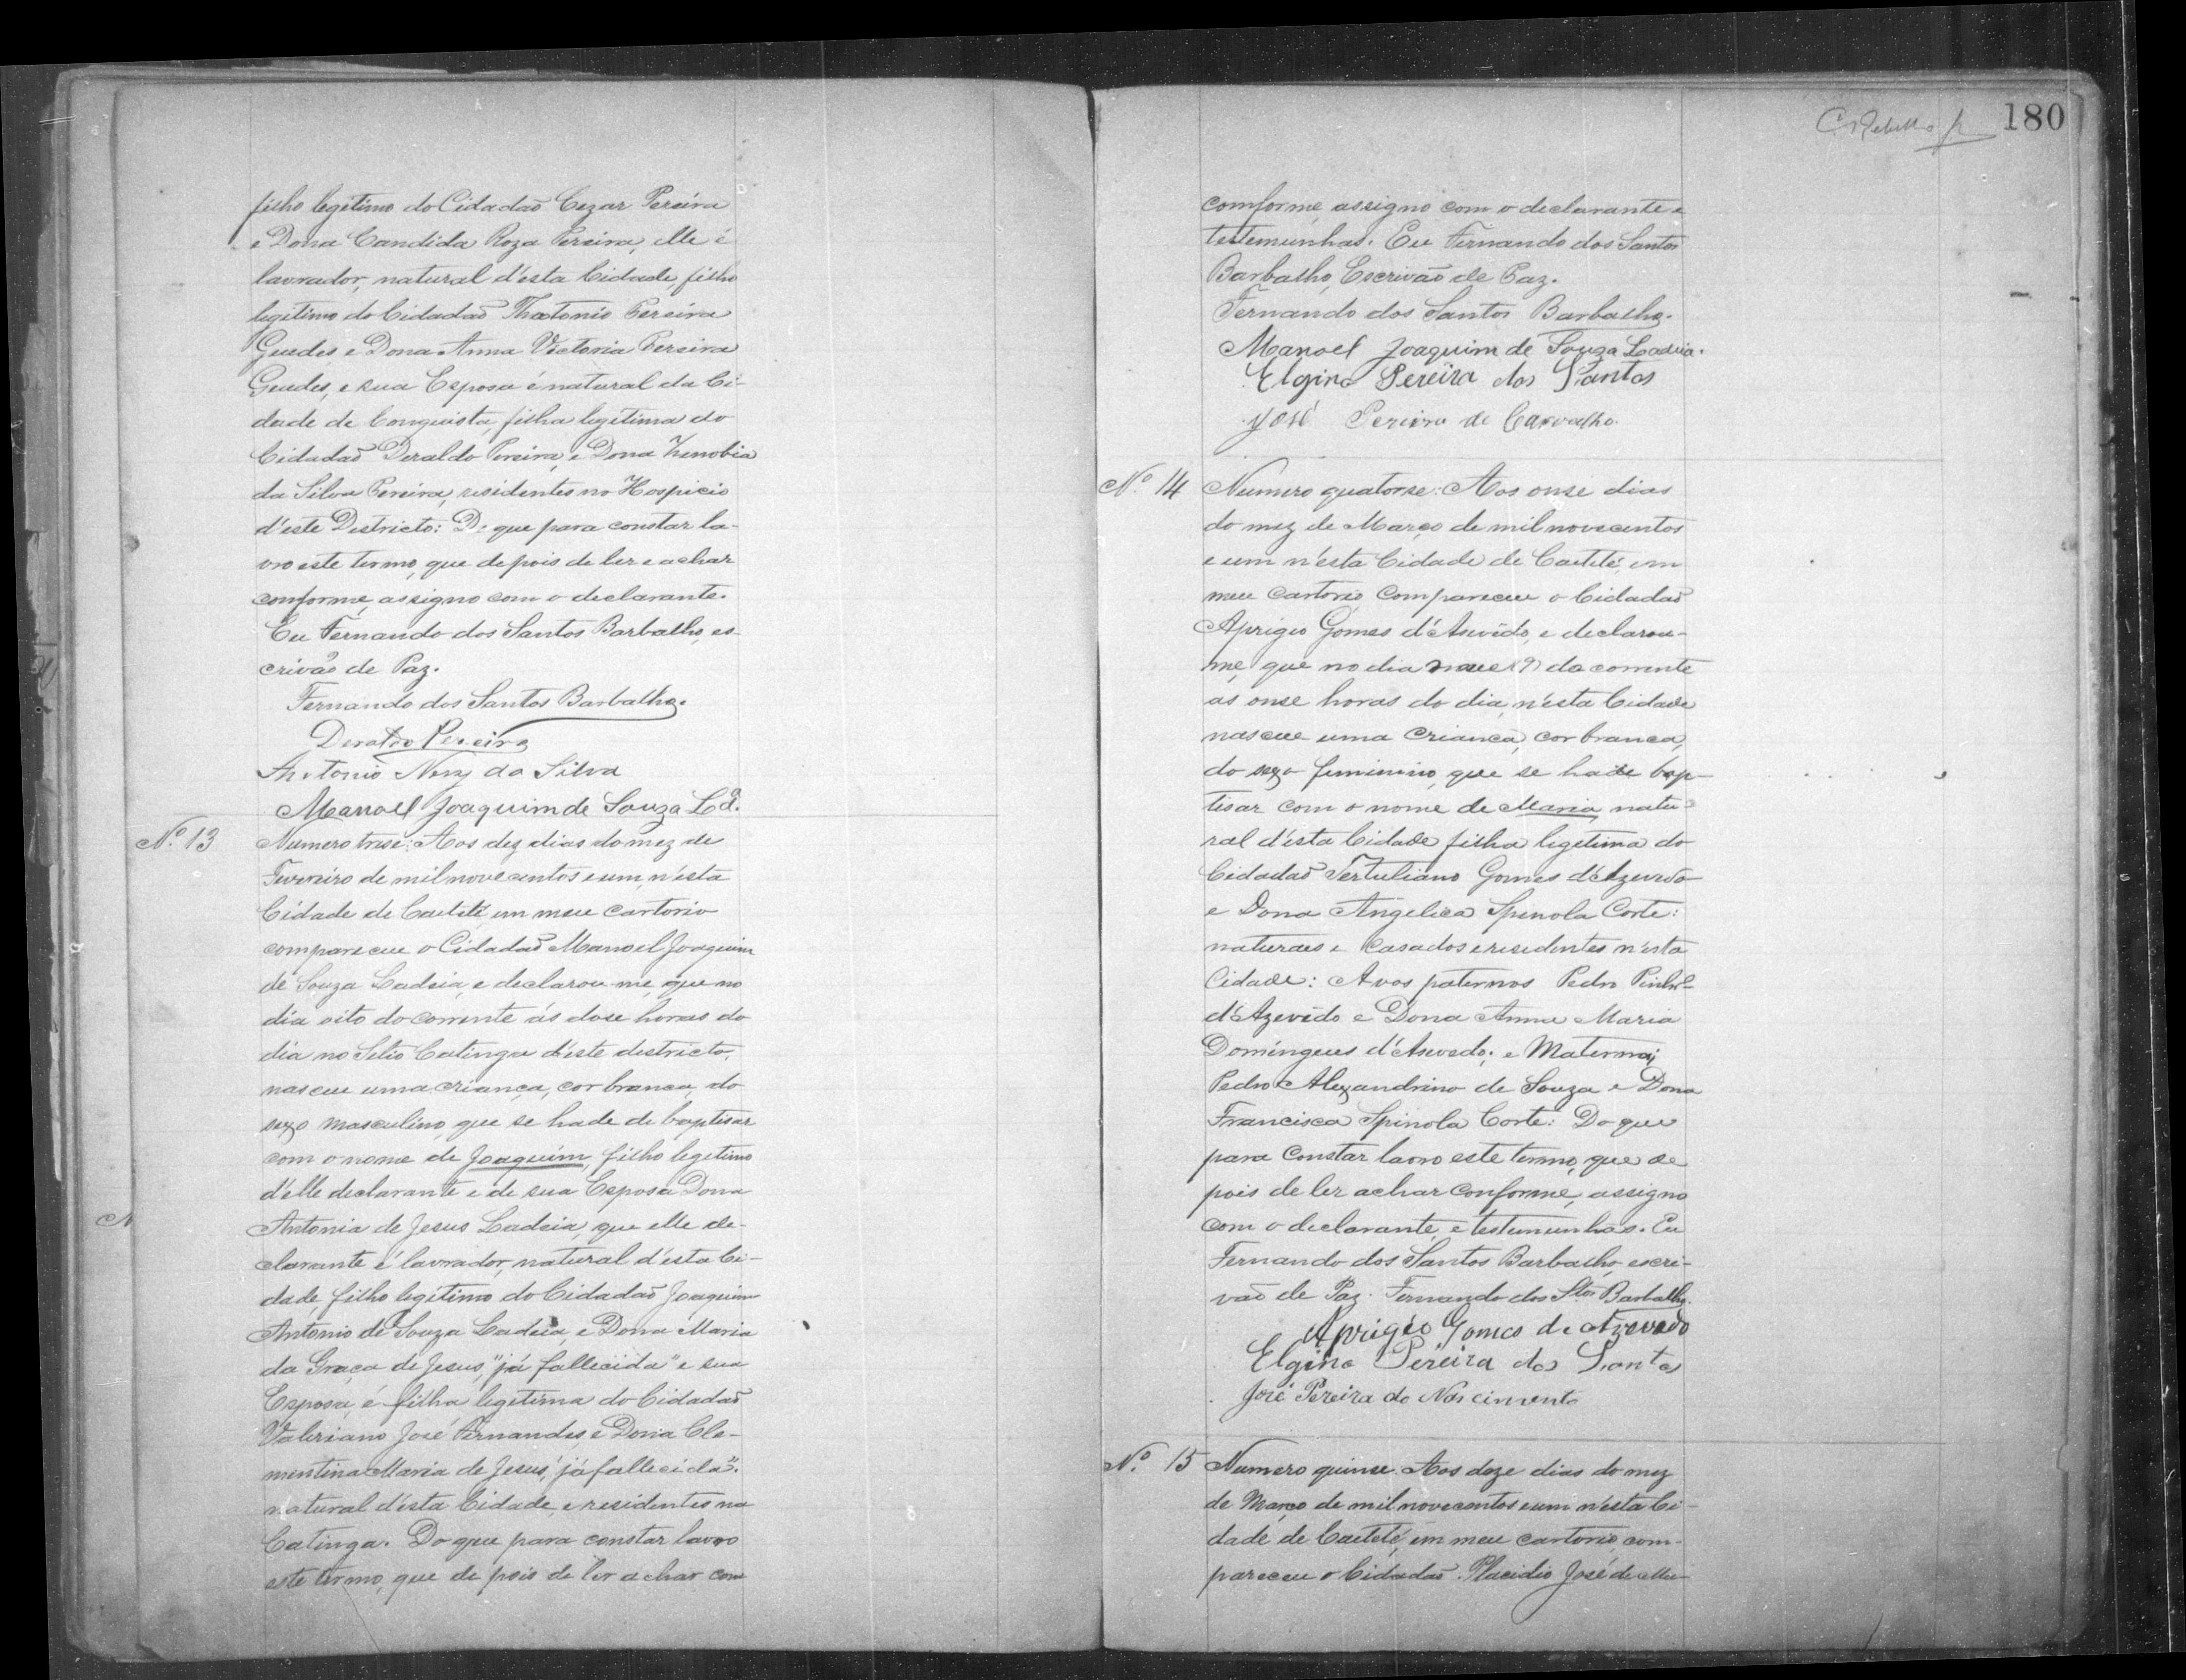 filho legitimo do Cidadaõ Cezar Pereira
e Dona Candida Roza Pereira, elle é
lavrador, natural d'esta Cidade, filho
legitimo do Cidadaõ Theotonio Pereira
Guedes e Dona Anna Victoria Pereira
Guedes, e sua Esposa é natural da Ci-
dade de Conquista, filha legitima do
Cidadaõ Deraldo Pereira, e Dona Zenobia
da Silva Pereira, residentes no Hospicio
d'este Districto: Do que para constar la-
vro este termo, que depois de ler e achar
conforme, assigno com o declarante.
Eu Fernando dos Santos Barbalho, es-
crivão de Paz.
Fernando dos Santos Barbalho.
Deraldo Pereira
Antonio Nery da Silva
Manoel Joaquim de Souza Ldª.
Nº 13 Numero trese: Aos dez dias do mez de
Fevereiro de mil nove centos e um, n'esta
Cidade de Caeteté, em meu cartorio
compareceu o Cidadaõ Manoel Joaquim
de Souza Ladeia, e declarou-me, que no
dia oito do corrente ás dose horas do
dia no Sitio Catinga d'este districto,
nasceu uma criança, cor branca, do
sexo masculino, que se hade de baptisar
com o nome de Joaquim, filho legitimo
d'elle declarante e de sua Esposa Dona
Antonia de Jesus Ladeia, que elle de-
clarante é lavrador, natural d'esta Ci-
dade, filho legitimo do Cidadaõ Joaquim
Antonio de Souza Ladeia, e Dona Maria
da Graça de Jesus, "já fallecida" e sua
Esposa, é filha legitima do Cidadaõ
Valeriano José Fernandes, e Dona Cle-
mentina Maria de Jesus, "já fallecida".
natural d'esta Cidade, e residentes na
Catinga. Do que para constar lavro
este termo, que de pois de ler achar com
180
comforme, assigno com o declarante e
testemunhas. Eu Fernando dos Santos
Barbalho, Escrivão de Paz.
Fernando dos Santos Barbalho.
Manoel Joaquim de Souza Ladeia.
Elgino Pereira dos Santos
José Pereira de Carvalho.
Nº 14 Numero quatorse: Aos onse dias
do mez de Março de mil novecentos
e um n'esta Cidade de Caeteté, em
meu cartorio compareceu o Cidadaõ
Aprigio Gomes d'Asevêdo, e declarou-
me, que no dia nove (9) do corrente
as onse horas do dia, n'esta Cidade
nasceu uma criança, cor branca,
do sexo feminino, que se hade bap-
tisar com o nome de Maria, natu-
ral d'esta Cidade filha legitima do
Cidadaõ Tertuliano Gomes d'Azevedo
e Dona Angelica Spinola Corte:
naturaes e casados e residentes n'esta
Cidade: Avos paternos Pedro Pinhrº
d'Azevêdo e Dona Anna Maria
Domingues d'Asevedo; e Maternaj
Pedro Alexandrino de Souza e Dona
Francisca Spinola Corte: Do que
para constar lavro este termo, que de
pois de ler achar conforme, assigno
com o declarante, e testemunhas. Eu
Fernando dos Santos Barbalho, escri-
vaõ de Paz. Fernando dos Stos Barbalho.
Aprigio Gomes de Azevedo
Elgino Pereira dos Santos
José Pereira do Nascimento
Nº 15 Numero quinse. Aos doze dias do mez
de Março de mil novecentos e um n'esta Ci-
dade de Caeteté, em meu cartorio, com-
pareceu o Cidadaõ Placidio José de